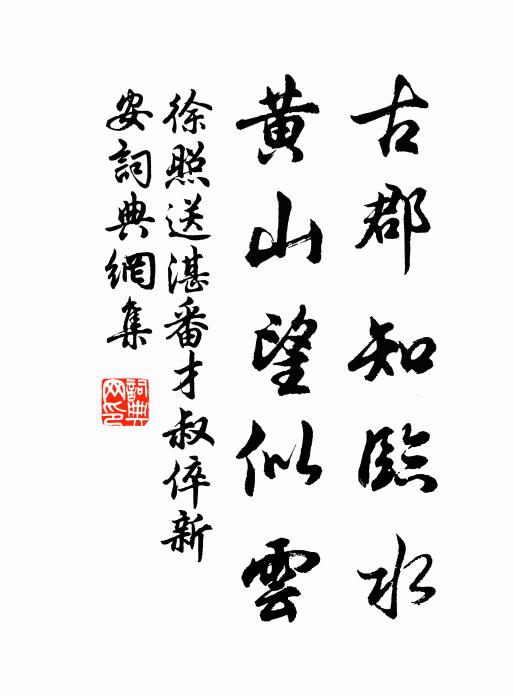 古郡知臨水
黃山望似雲
徐照送湛番才叔倅新
安詞典網集
詞典網印